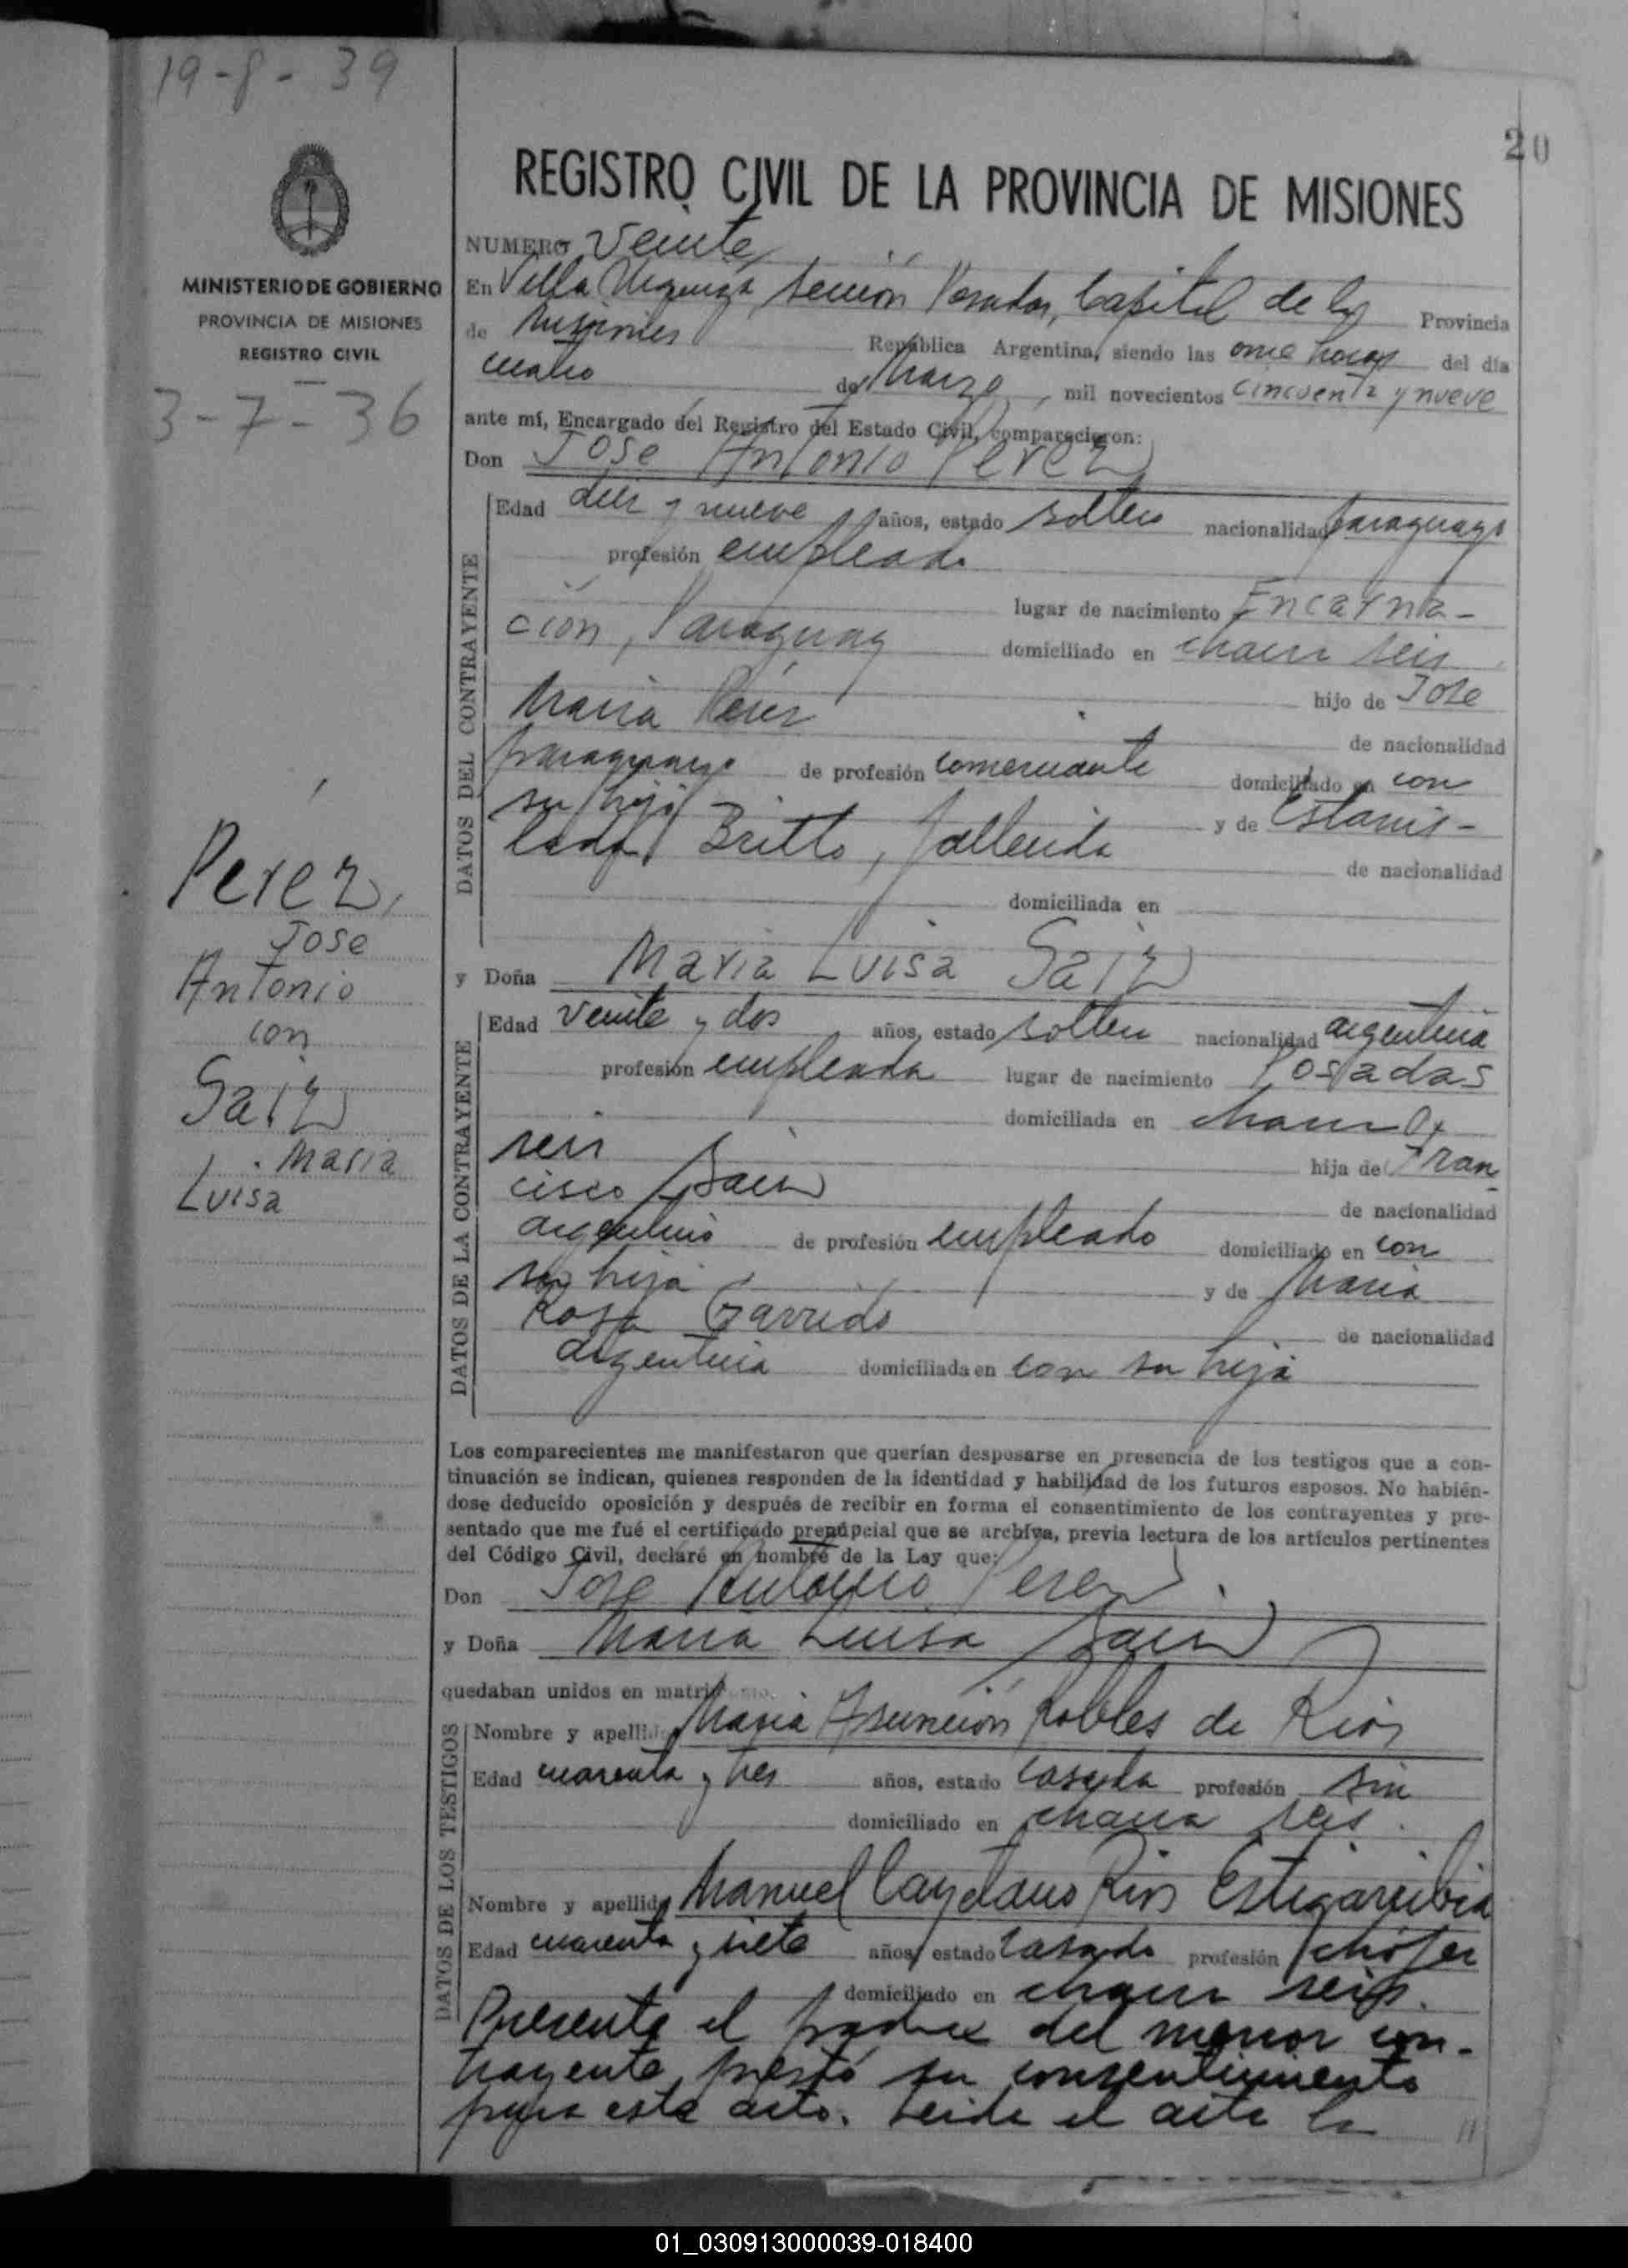 19-8-39
20
REGISTRO CIVIL DE LA PROVINCIA DE MISIONES
MINISTERIO DE GOBIERNO
PROVINCIA DE MISIONES
REGISTRO CIVIL
3-7-36
Perez,
Jose
Antonio
con
Saiz
Maria
Luisa
NUMERO Veinte
En Villa Urquiza, sección Posadas, Capital de la Provincia
de Misiones República Argentina, siendo las once horas del día
cuatro de Marzo, mil novecientos cincuenta y nueve
ante mí, Encargado del Registro del Estado Civil, comparecieron:
Don Jose Antonio Perez
DATOS DEL CONTRAYENTE
Edad diez y nueve años, estado soltero nacionalidad paraguayo
profesión empleado
lugar de nacimiento Encarna-
ción, Paraguay domiciliado en chacra seis
hijo de Jose
Maria Perez
de nacionalidad
paraguayo de profesión comerciante domiciliado en con
su hijo y de Estanis-
lada Britto, fallecida
de nacionalidad
domiciliada en
y Doña Maria Luisa Saiz
DATOS DE LA CONTRAYENTE
Edad veinte y dos años, estado soltera nacionalidad argentina
profesión empleada lugar de nacimiento Posadas
domiciliada en chacra
seis hija de Fran
cisco Saiz
de nacionalidad
argentino de profesión empleado domiciliado en con
su hija y de Maria
Rosa Garrido
de nacionalidad
argentina domiciliada en con su hija
Los comparecientes me manifestaron que querían desposarse en presencia de los testigos que a con-
tinuación se indican, quienes responden de la identidad y habilidad de los futuros esposos. No habién-
dose deducido oposición y después de recibir en forma el consentimiento de los contrayentes y pre-
sentado que me fué el certificado prenupcial que se archiva, previa lectura de los artículos pertinentes
del Código Civil, declaré en nombre de la Ley que:
Don Jose Antonio Perez
y Doña Maria Luisa Saiz
quedaban unidos en matri
DATOS DE LOS TESTIGOS
Nombre y apellido Maria Asunción Robles de Rios
Edad cuarenta y tres años, estado casada profesión sin
domiciliado en chacra seis.
Nombre y apellido Manuel Cayetano Rios Estigarribia
Edad cuarenta y siete años, estado casado profesión chófer
domiciliado en chacra seis.
Presente el padre del menor con-
trayente, prestó su consentimiento
para este acto. Leida el acta la //
01_030913000039-018400